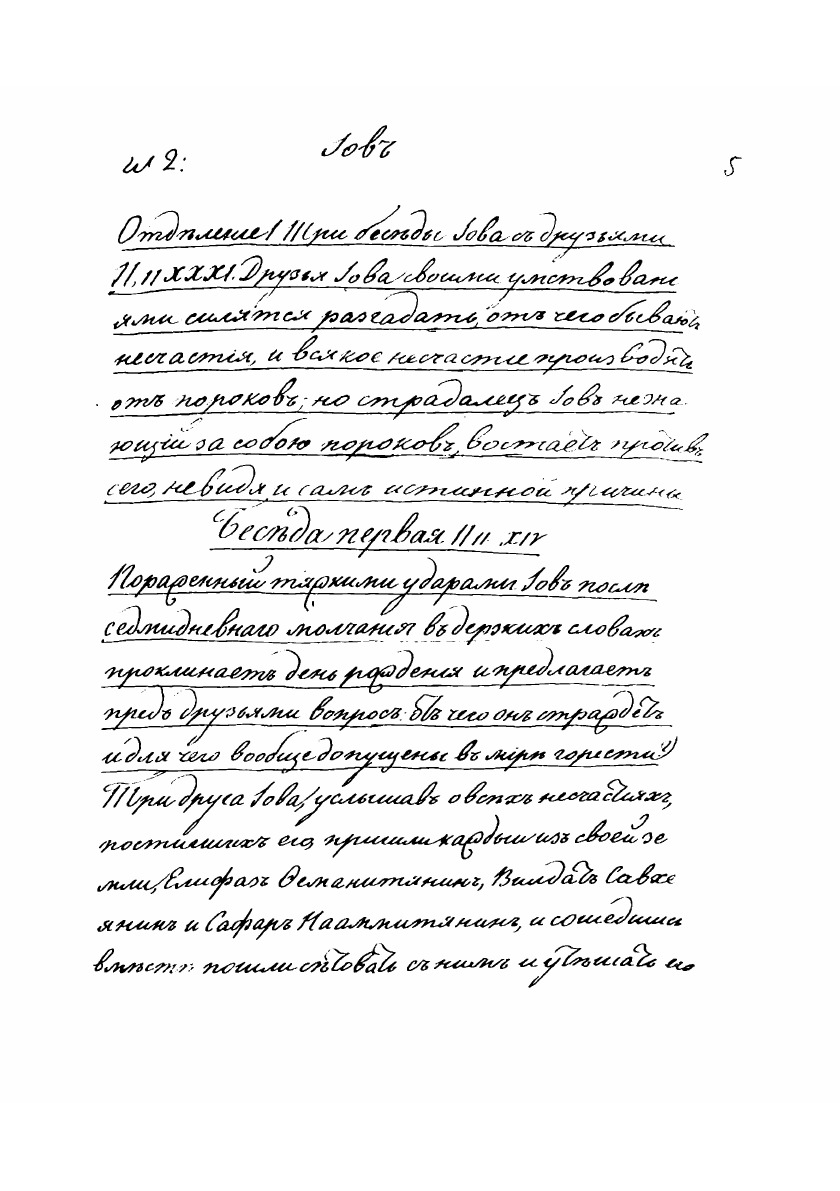 гл 2:
Іовъ
5
Отдѣленіе I Три бесѣды Іова съ друзьями
II, 11 XXXI. Друзья Іова своими умствовані
ями силятся разгадать, отъ чего бываютъ
несчастія, и всякое несчастіе производятъ
отъ пороковъ; но страдалецъ Іовъ незна
ющій за собою пороковъ, востаетъ противъ
сего, невидя и самъ истинной причины
Бесѣда первая II 11 XIV
Пораженный тяжкими ударами Іовъ послѣ
седмидневнаго молчанія въ дерзкихъ словахъ
проклинаетъ день рожденія и предлагаетъ
предъ друзьями вопросъ: отъ чего онъ страждетъ
и для чего вообще допущены въ мірѣ горести
Три друга Іова, услышавъ о всѣхъ несчастіяхъ,
постигшихъ его, пришли каждый изъ своей зе
мли, Елифазъ Ѳеманитянинъ, Вилдатъ Савхе
янинъ и Сафаръ Наамитянинъ, и сошедшись
вмѣстѣ пошли сѣтовать съ нимъ и утѣшать его